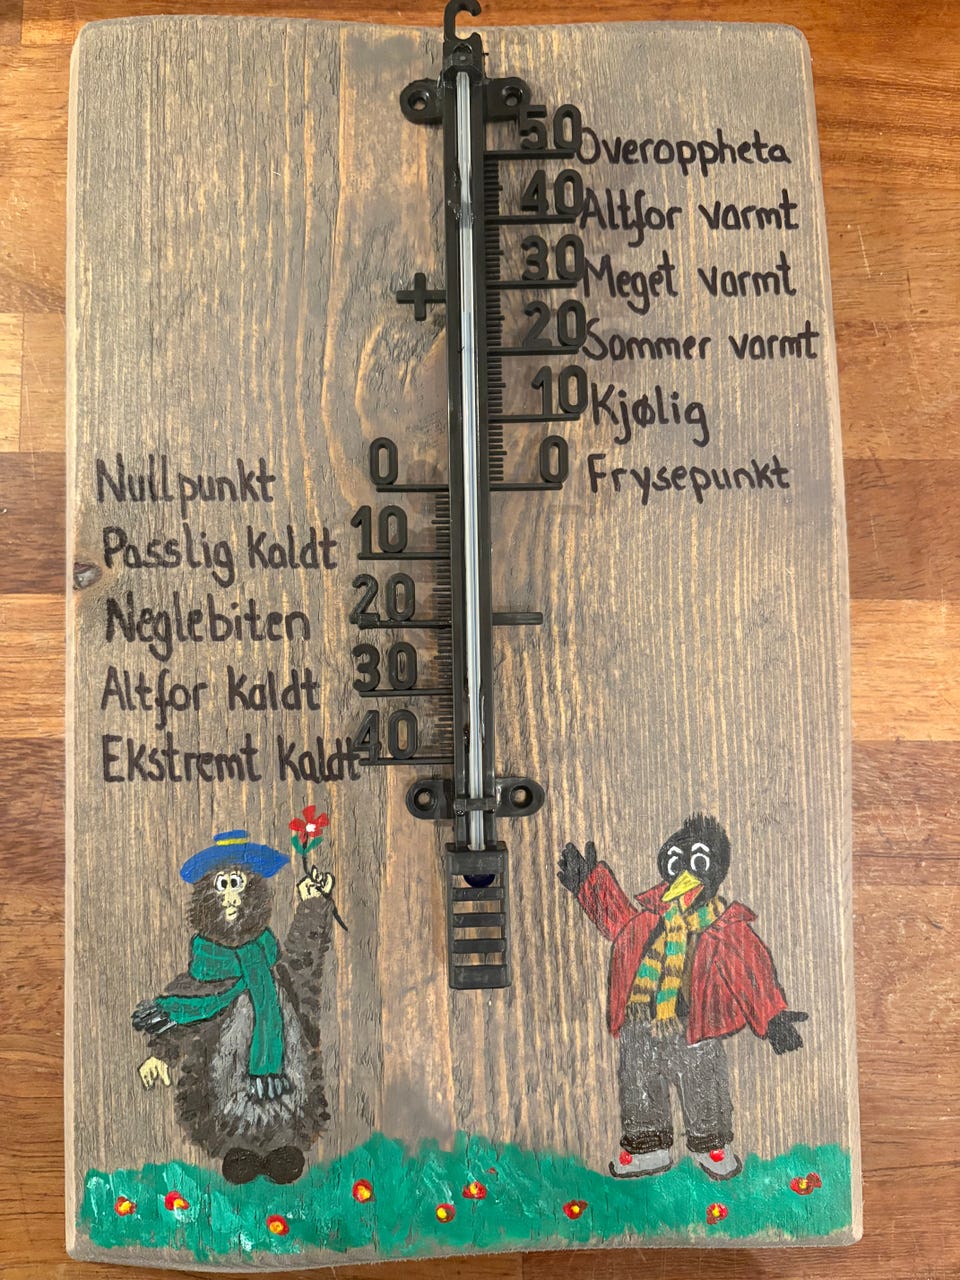 50 Overoppheta
40 Altfor varmt
30 Meget varmt
+
20 Sommer varmt
10 Kjølig
0 Frysepunkt
Nullpunkt 0
Passlig Kaldt 10
Neglebiten 20 -
Altfor Kaldt 30
Ekstremt Kaldt 40